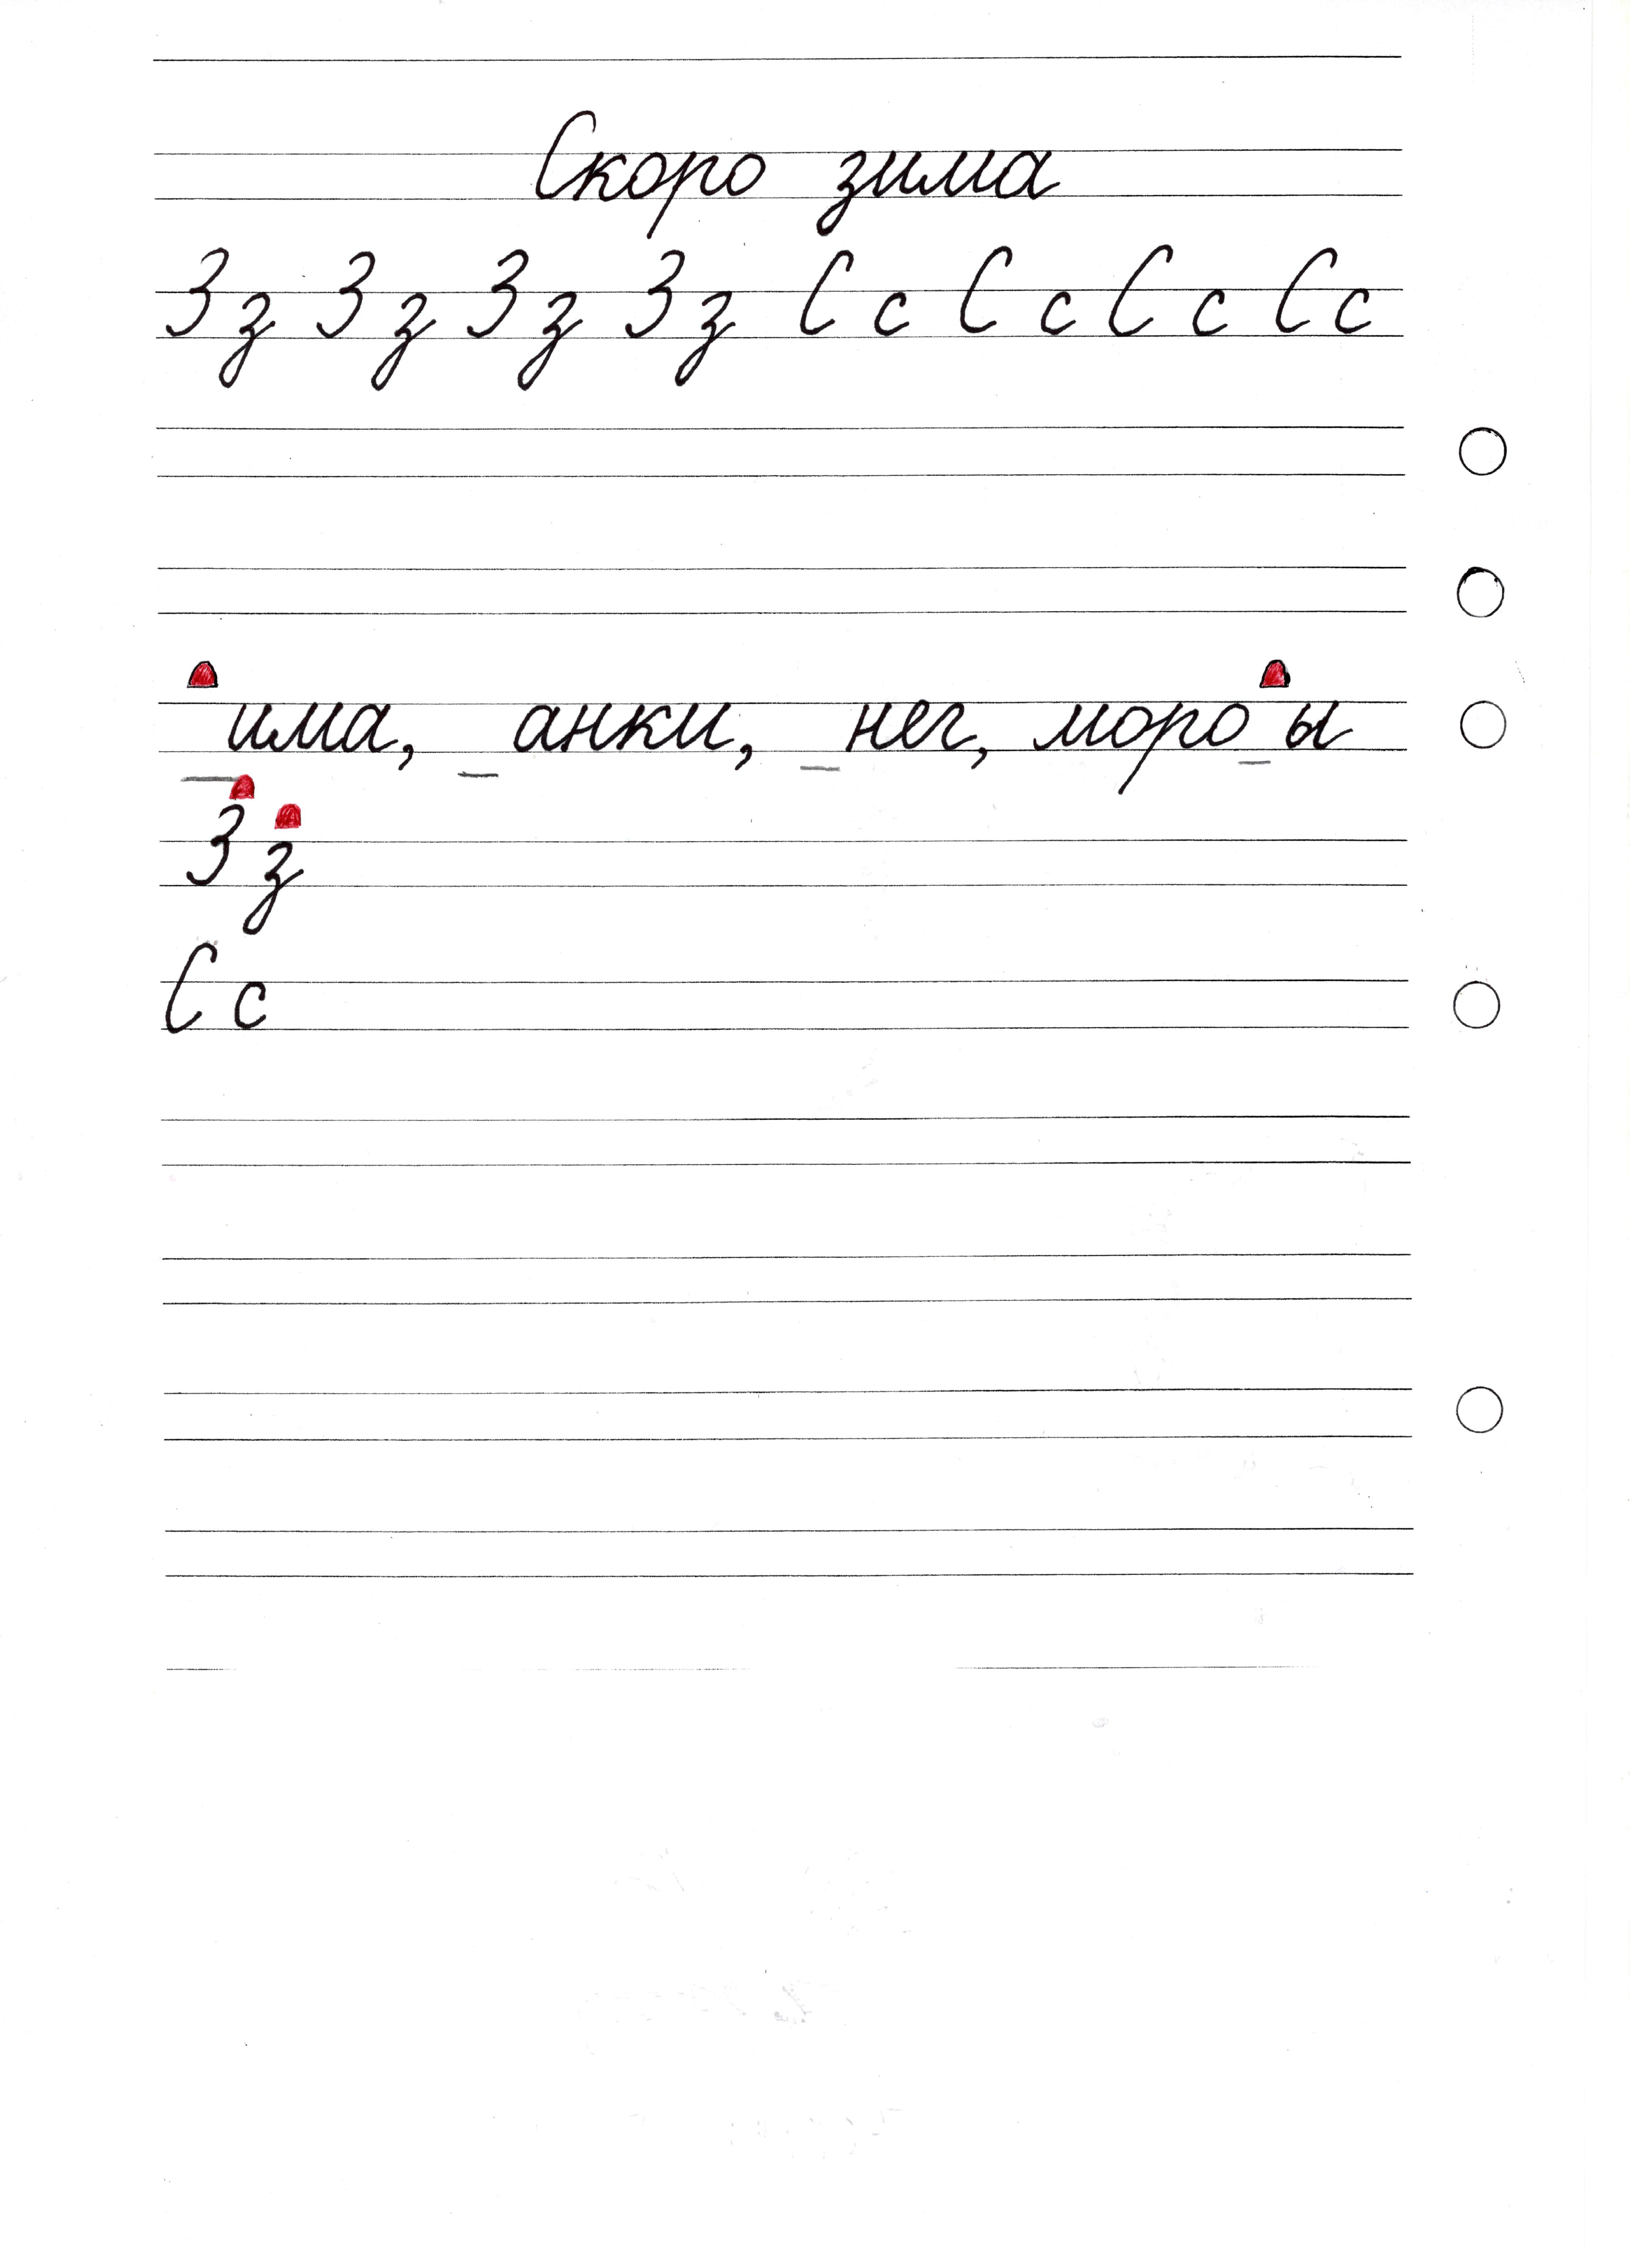 Скоро зима
З з З з З з З з С с С с С с С с
_има, _анки, _нег, моро_ы
З з
С с